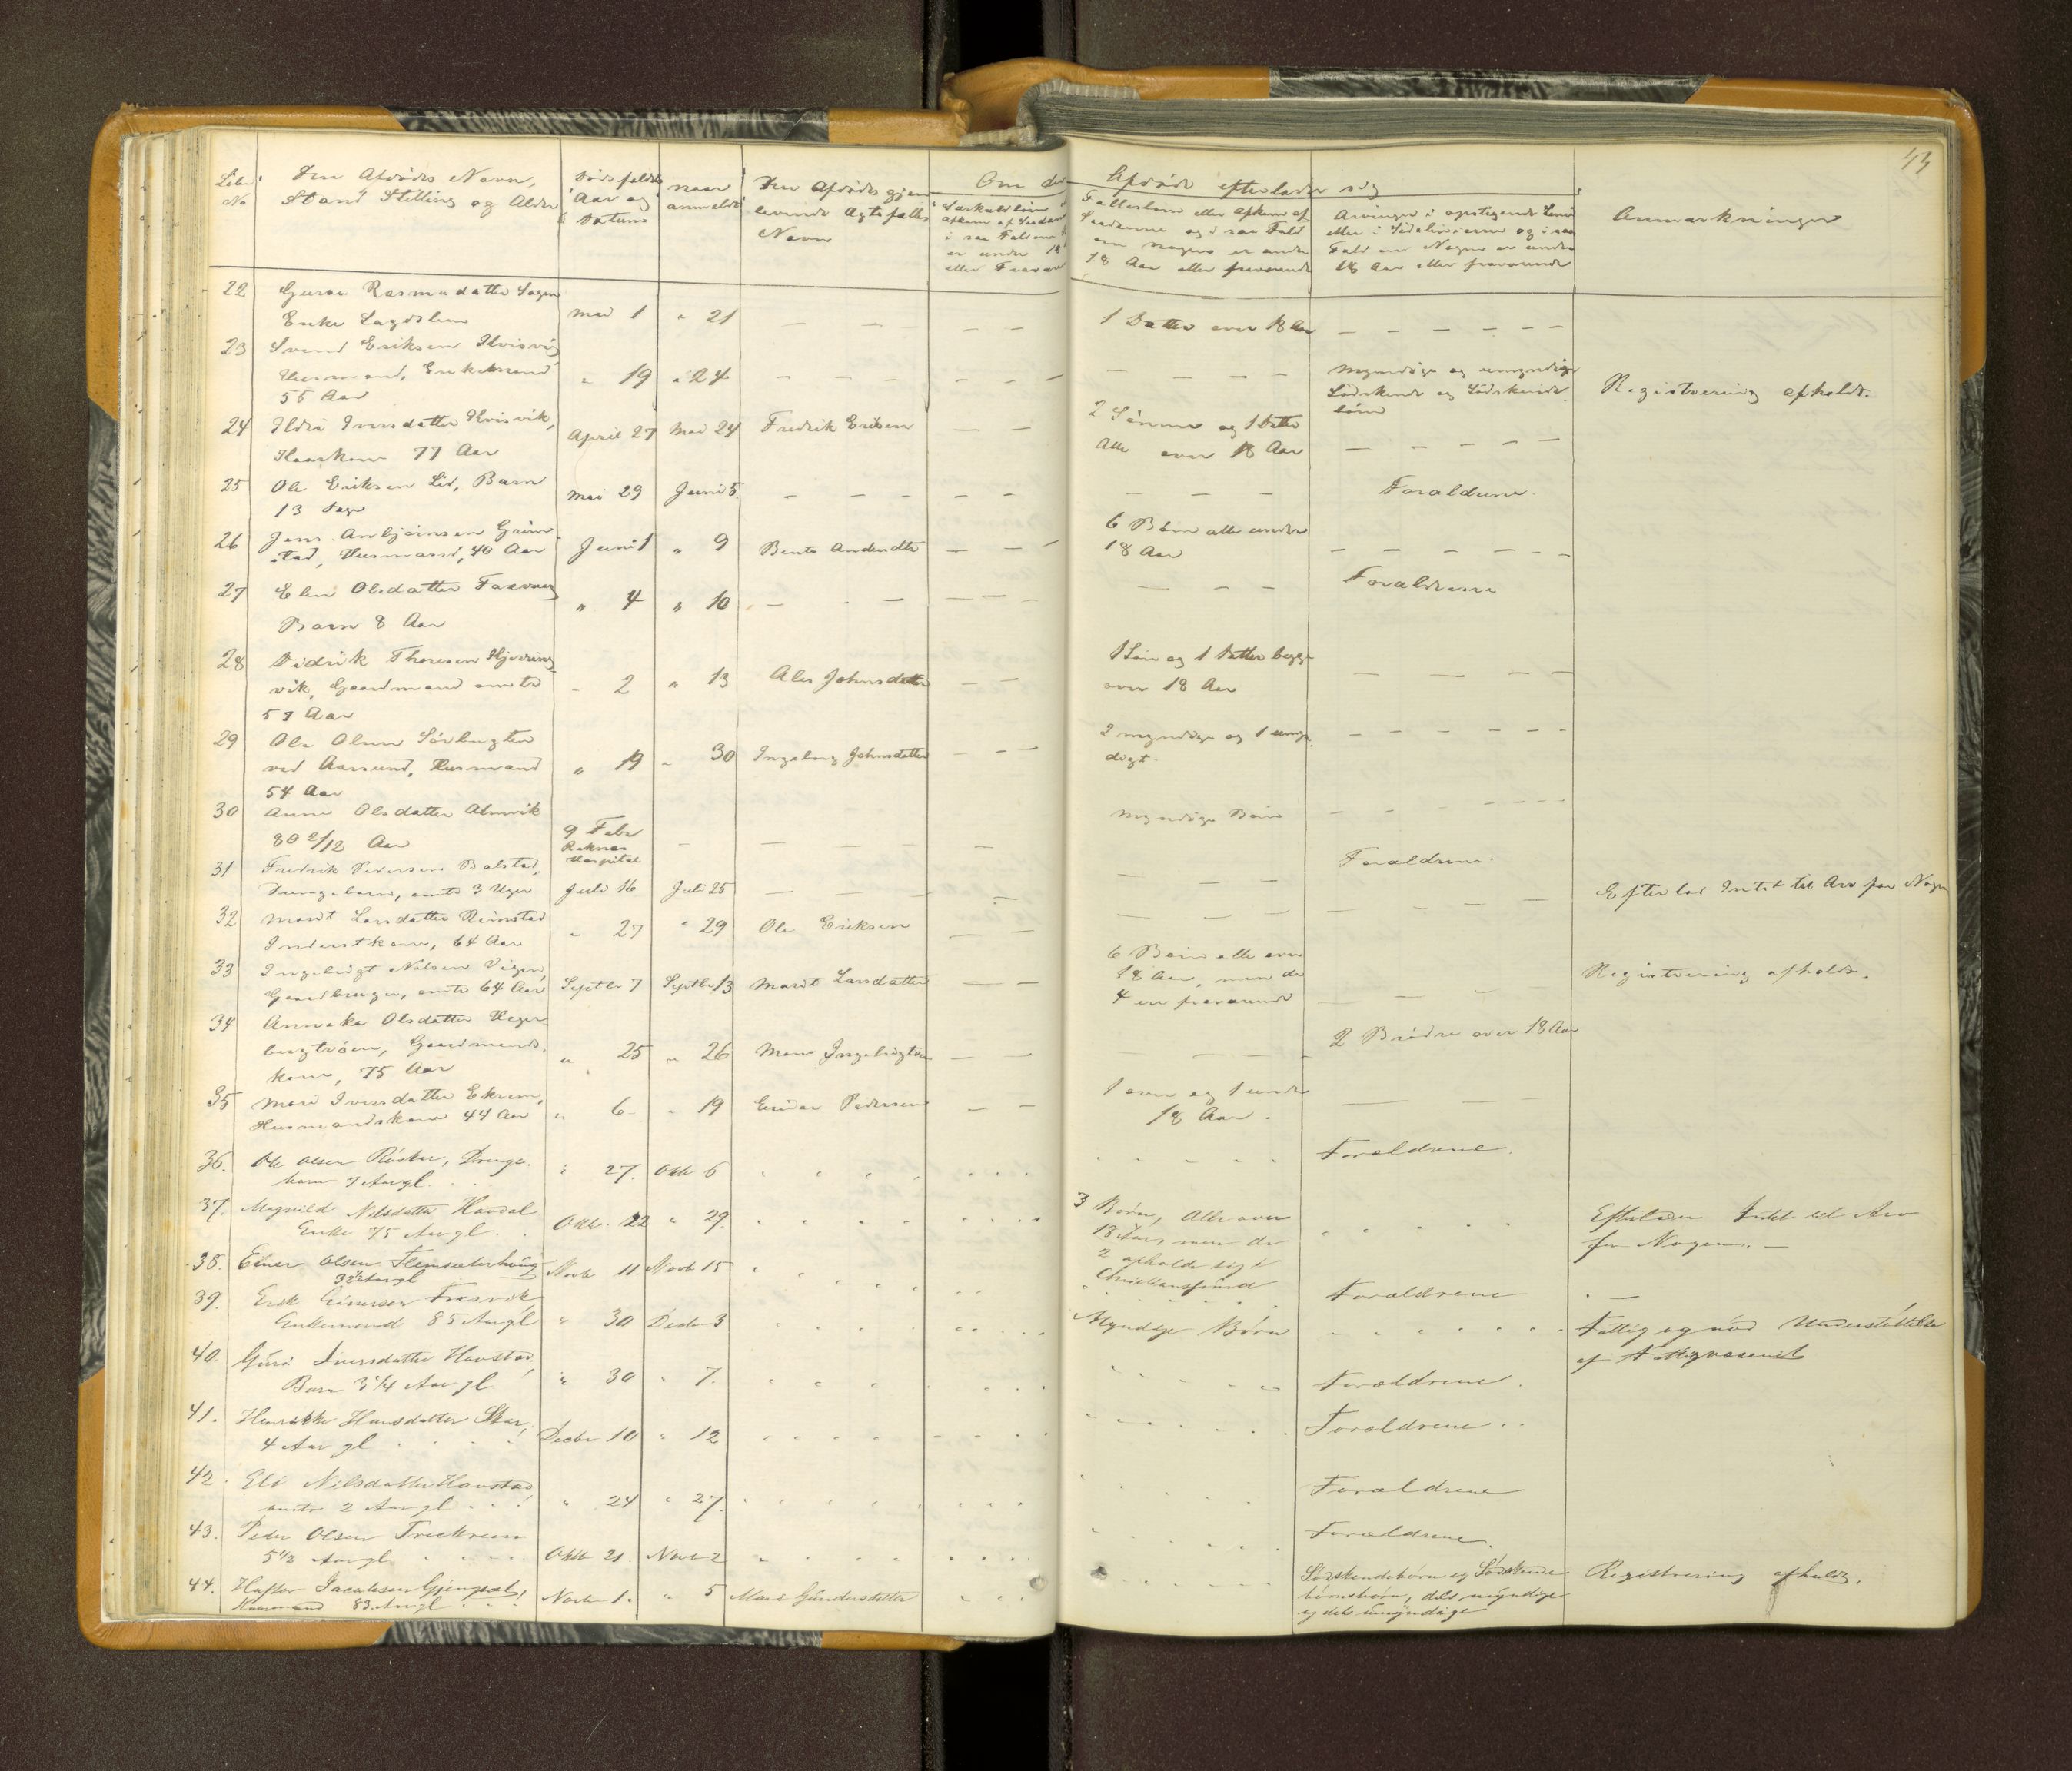 44
Løbe No
Den Afdødes Navn, Stand Stilling og Alder
Dødsfaldets Aar og Datum
naar anmeldt
Den Afdødes gjenlevende Ægtefælles Navn
Om den Afdøde efterlader sig
Særkuldbørn
Fællesbørn eller Afkom af Saadanne og i saa Fald om nogen er under 18 Aar eller fraværende
Arvinger i opstigende Linie eller i Sidelinierne og i saa Fald om Nogen er under 18 Aar eller fraværende
Anmærkninger
22 Guroe Rasmusdatter
Enke
Mai 1 " 21
1 Datter over 18 Aar
23 Svend Eriksen Kvisvig
Husmand, Enkemand
55 Aar
" 19 " 24
Myndige og umyndige
Södskende og Södskende
börn
Registrering afholdt.
24 Ildri Iversdatter Kvisvik,
Kaarkone 77 Aar
April 27 Mai 24 Fredrik Eriksen
2 Sönner og 1 Datter
Alle over 18 Aar
25 Ole Eriksen Lid, Barn
13 Dage
Mai 29 Juni 5
Forældrene.
26 Jens Anbjörnsen Grim-
stad, Husmand, 40 Aar
Juni 1 " 9 Bente Andersdtr
6 Börn alle under
18 Aar
27 Elen Olsdatter
Barn 8 Aar
" 4 " 10
Forældrene
28 Didrik Thoresen
vik, Gaardmand omtr
57 Aar
" 2 " 13 Ales Johnsdatter
1 Sön og 1 Datter begge
over 18 Aar
29 Ole Olsen Sörbugten
ved Aarsund, Husmand
54 Aar
" 19 " 30 Ingeborg Johnsdatter
2 myndige og 1 umyn
digt.
30 Anne Olsdatter Alnvik
80 2/12 Aar
9 Febr
Reknes
Hospital
Myndige Börn
31 Fredrik Pedersen Bolstad,
Drengebarn, omtr 3 Uger
Juli 16 Juli 25
Forældrene.
32 Marit Larsdatter Reinstad
Inderstkone, 64 Aar
" 27 " 29 Ole Eriksen
Efterlod Intet til Arv for Nogen
33 Ingebrigt Nilsen Vigen,
Gaardbruger, omtr 64 Aar
Septbr 7 Septbr 13 Marit Larsdatter
6 Börn alle over
18 Aar, men de
4 ere fraværende
Registrering afholdt.
34 Anneka Olsdatter Heger-
bergtröen, Gaardmands-
kone, 75 Aar
" 25 " 26 Mons Ingebrigtsen
2 Brödre over 18 Aar
35 Mari Iversdatter Ekrem,
Husmandskone 44 Aar
" 6 " 19 Peder Pedersen
1 over og 1 under
18 Aar.
36. Ole Olsen Drenge-
barn 7 Aar gl.
" 27. Oktb 6
Forældrene.
37. Magnild Nilsdatter Havdal
Enke 75 Aar gl.
Oktb. 22 " 29.
3 Børn, Alle over
18 Aar, men de
2 opholde sig i
Christiansund
Efterlader Intet til Arv
for Nogen. —
38. Einer Olsen Flemsæterhaug
3 Aar gl
Novb 11. Novb 15
Forældrene
39. Erik Einersen
Enkemand 85 Aar gl
" 30 Decbr 3
Myndige Børn
Fattig og nød Understøttelse
af Fattigvæsenet
40. Guri Iversdatter Havstad,
Barn 3 1/4 Aar gl
" 30 " 7.
Forældrene.
41. Henrikke Hansdatter Skar,
4 Aar gl
Decbr 10 " 12
Forældrene
42. Eli Nilsdatter Havstad,
omtr 2 Aar gl
" 24 " 27.
Forældrene
43. Peder Olsen
5 1/2 Aar gl
Oktb 21. Novb 2
Forældrene.
44. Haftor Jacobsen Gjengsæt,
Kaarmand 83 Aar gl
Novbr 1. " 5 Mari Gundersdatter
Södskendebörn og Södskende
börnsbörn, dels myndige
og dels umyndige
Registrering afholdt.